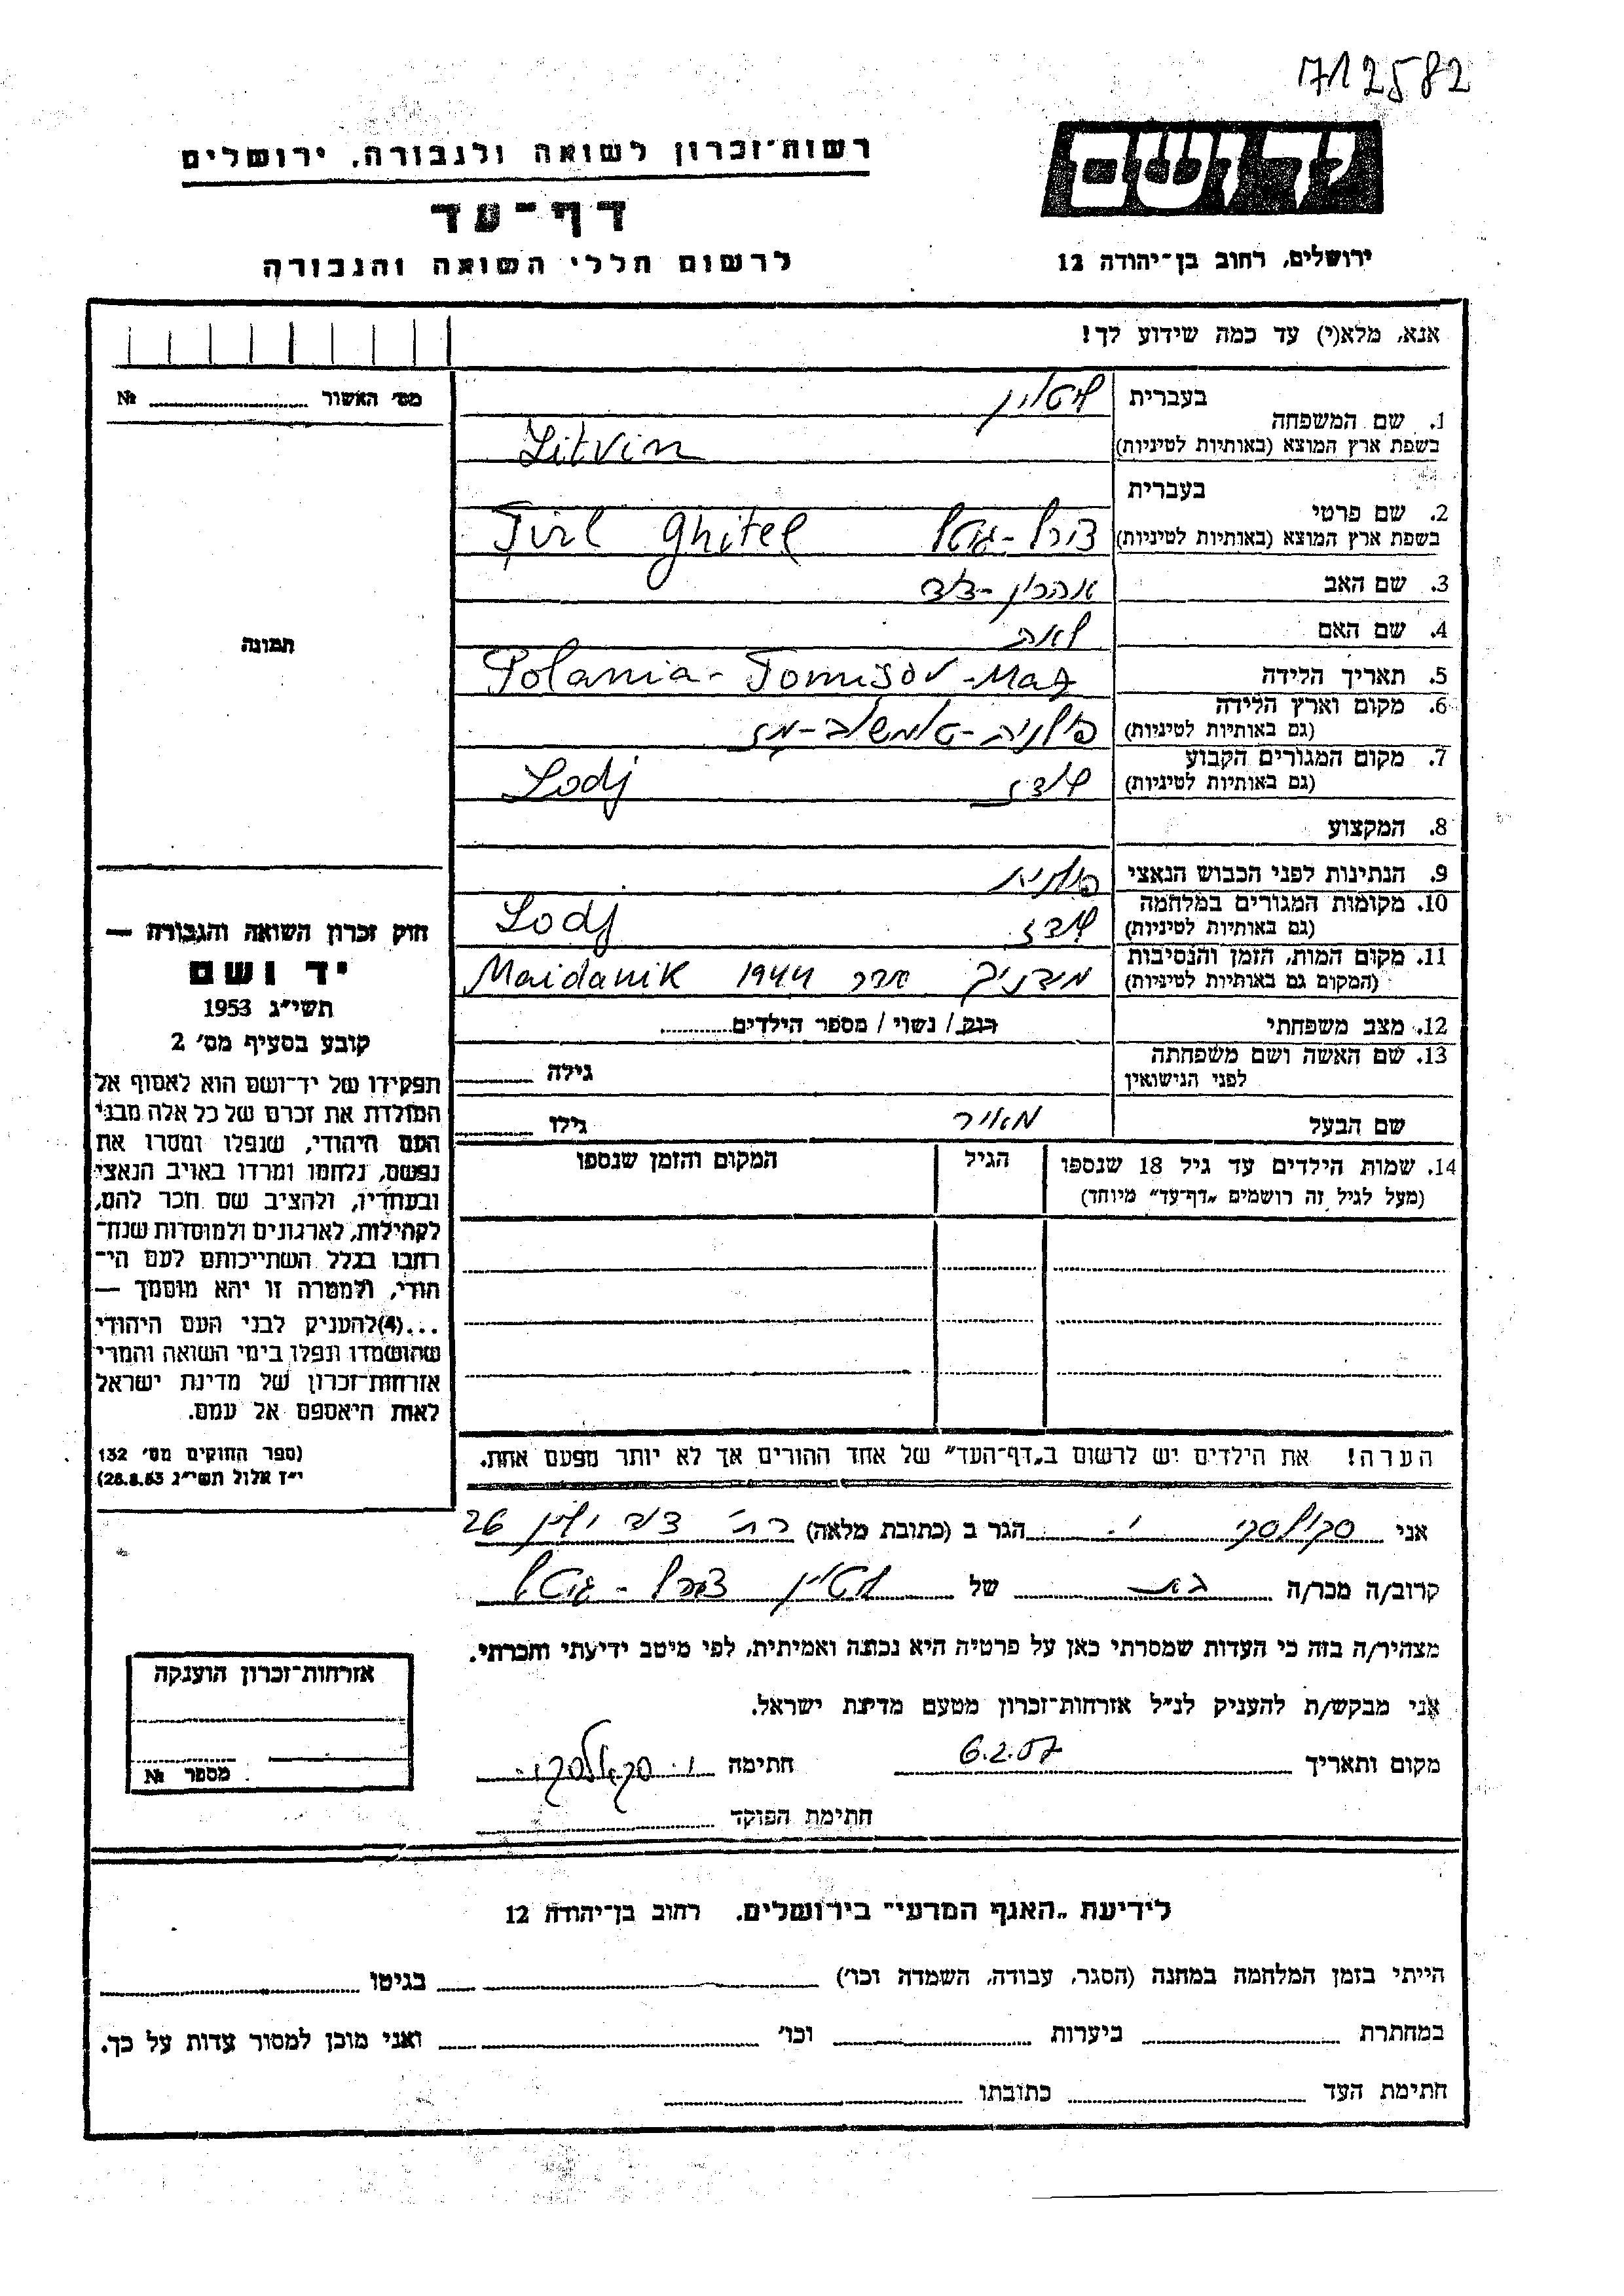 712582
יד ושם
רשות־זכרון לשואה ולגבורה, ירושלים
דף־עד
לרשום חללי השואה והגבורה
ירושלים, רחוב בן־יהודה 12
אנא, מלא(י) עד כמה שידוע לך!
מס׳ האשור № 
בעברית ליטוין
1. שם המשפחה
בשפת ארץ המוצא (באותיות לטיניות) Litvin
בעברית
2. שם פרטי
בשפת ארץ המוצא (באותיות לטיניות) Tirl Ghitel
3. שם האב אהרון - דוד
4. שם האם לאה
תמונה
5. תאריך הלידה Polania - Tomisov - Maz
6. מקום וארץ הלידה
(גם באותיות לטיניות) פולניה
7. מקום המגורים הקבוע
(גם באותיות לטיניות) לודז Lodj
8. המקצוע
9. הנתינות לפני הכבוש הנאצי
10. מקומות המגורים במלחמה
(גם באותיות לטיניות) לודז Lodj
11. מקום המות, הזמן והנסיבות
(המקום גם באותיות לטיניות) מידניק 1944 Maidanik
12. מצב משפחתי רוק / נשוי / מספר הילדים
13. שם האשה ושם משפחתה
לפני הנישואין גילה
שם הבעל מאיר גילו
14. שמות הילדים עד גיל 18 שנספו הגיל המקום והזמן שנספו
(מעל לגיל זה רושמים „דף־עד״ מיוחד)
חוק זכרון השואה והגבורה —
יד ושם
תשי״ג 1953
קובע בסעיף מס׳ 2
תפקידו של יד־ושם הוא לאסוף אל
המולדת את זכרם של כל אלה מבני
העם היהודי, שנפלו ומסרו את
נפשם, נלחמו ומרדו באויב הנאצי
ובעוזריו, ולהציב שם וזכר להם,
לקהילות, לארגונים ולמוסדות שנח־
רבו בגלל השתייכותם לעם הי־
הודי, ולמטרה זו יהא מוסמך —
...(4) להעניק לבני העם היהודי
שהושמדו ונפלו בימי השואה והמרי
אזרחות־זכרון של מדינת ישראל
לאות היאספם אל עמם.
(ספר החוקים מס׳ 132
י״ז אלול תשי״ג 28.8.53)
הערה! את הילדים יש לרשום ב„דף־העד״ של אחד ההורים אך לא יותר מפעם אחת.
אני סקולסקי י. הגר ב (כתובת מלאה) 26
קרוב/ה מכר/ה בת של ליטוין
מצהיר/ה בזה כי העדות שמסרתי כאן על פרטיה היא נכונה ואמיתית, לפי מיטב ידיעתי והכרתי.
אני מבקש/ת להעניק לנ״ל אזרחות־זכרון מטעם מדינת ישראל.
מקום ותאריך 6.2.57 חתימה
חתימת הפוקד
אזרחות־זכרון הוענקה
מספר №
לידיעת „האגף המדעי״ בירושלים. רחוב בן־יהודה 12
הייתי בזמן המלחמה במחנה (הסגר, עבודה, השמדה וכו׳) בגיטו
במחתרת ביערות וכו׳ ואני מוכן למסור עדות על כך.
חתימת העד כתובתו